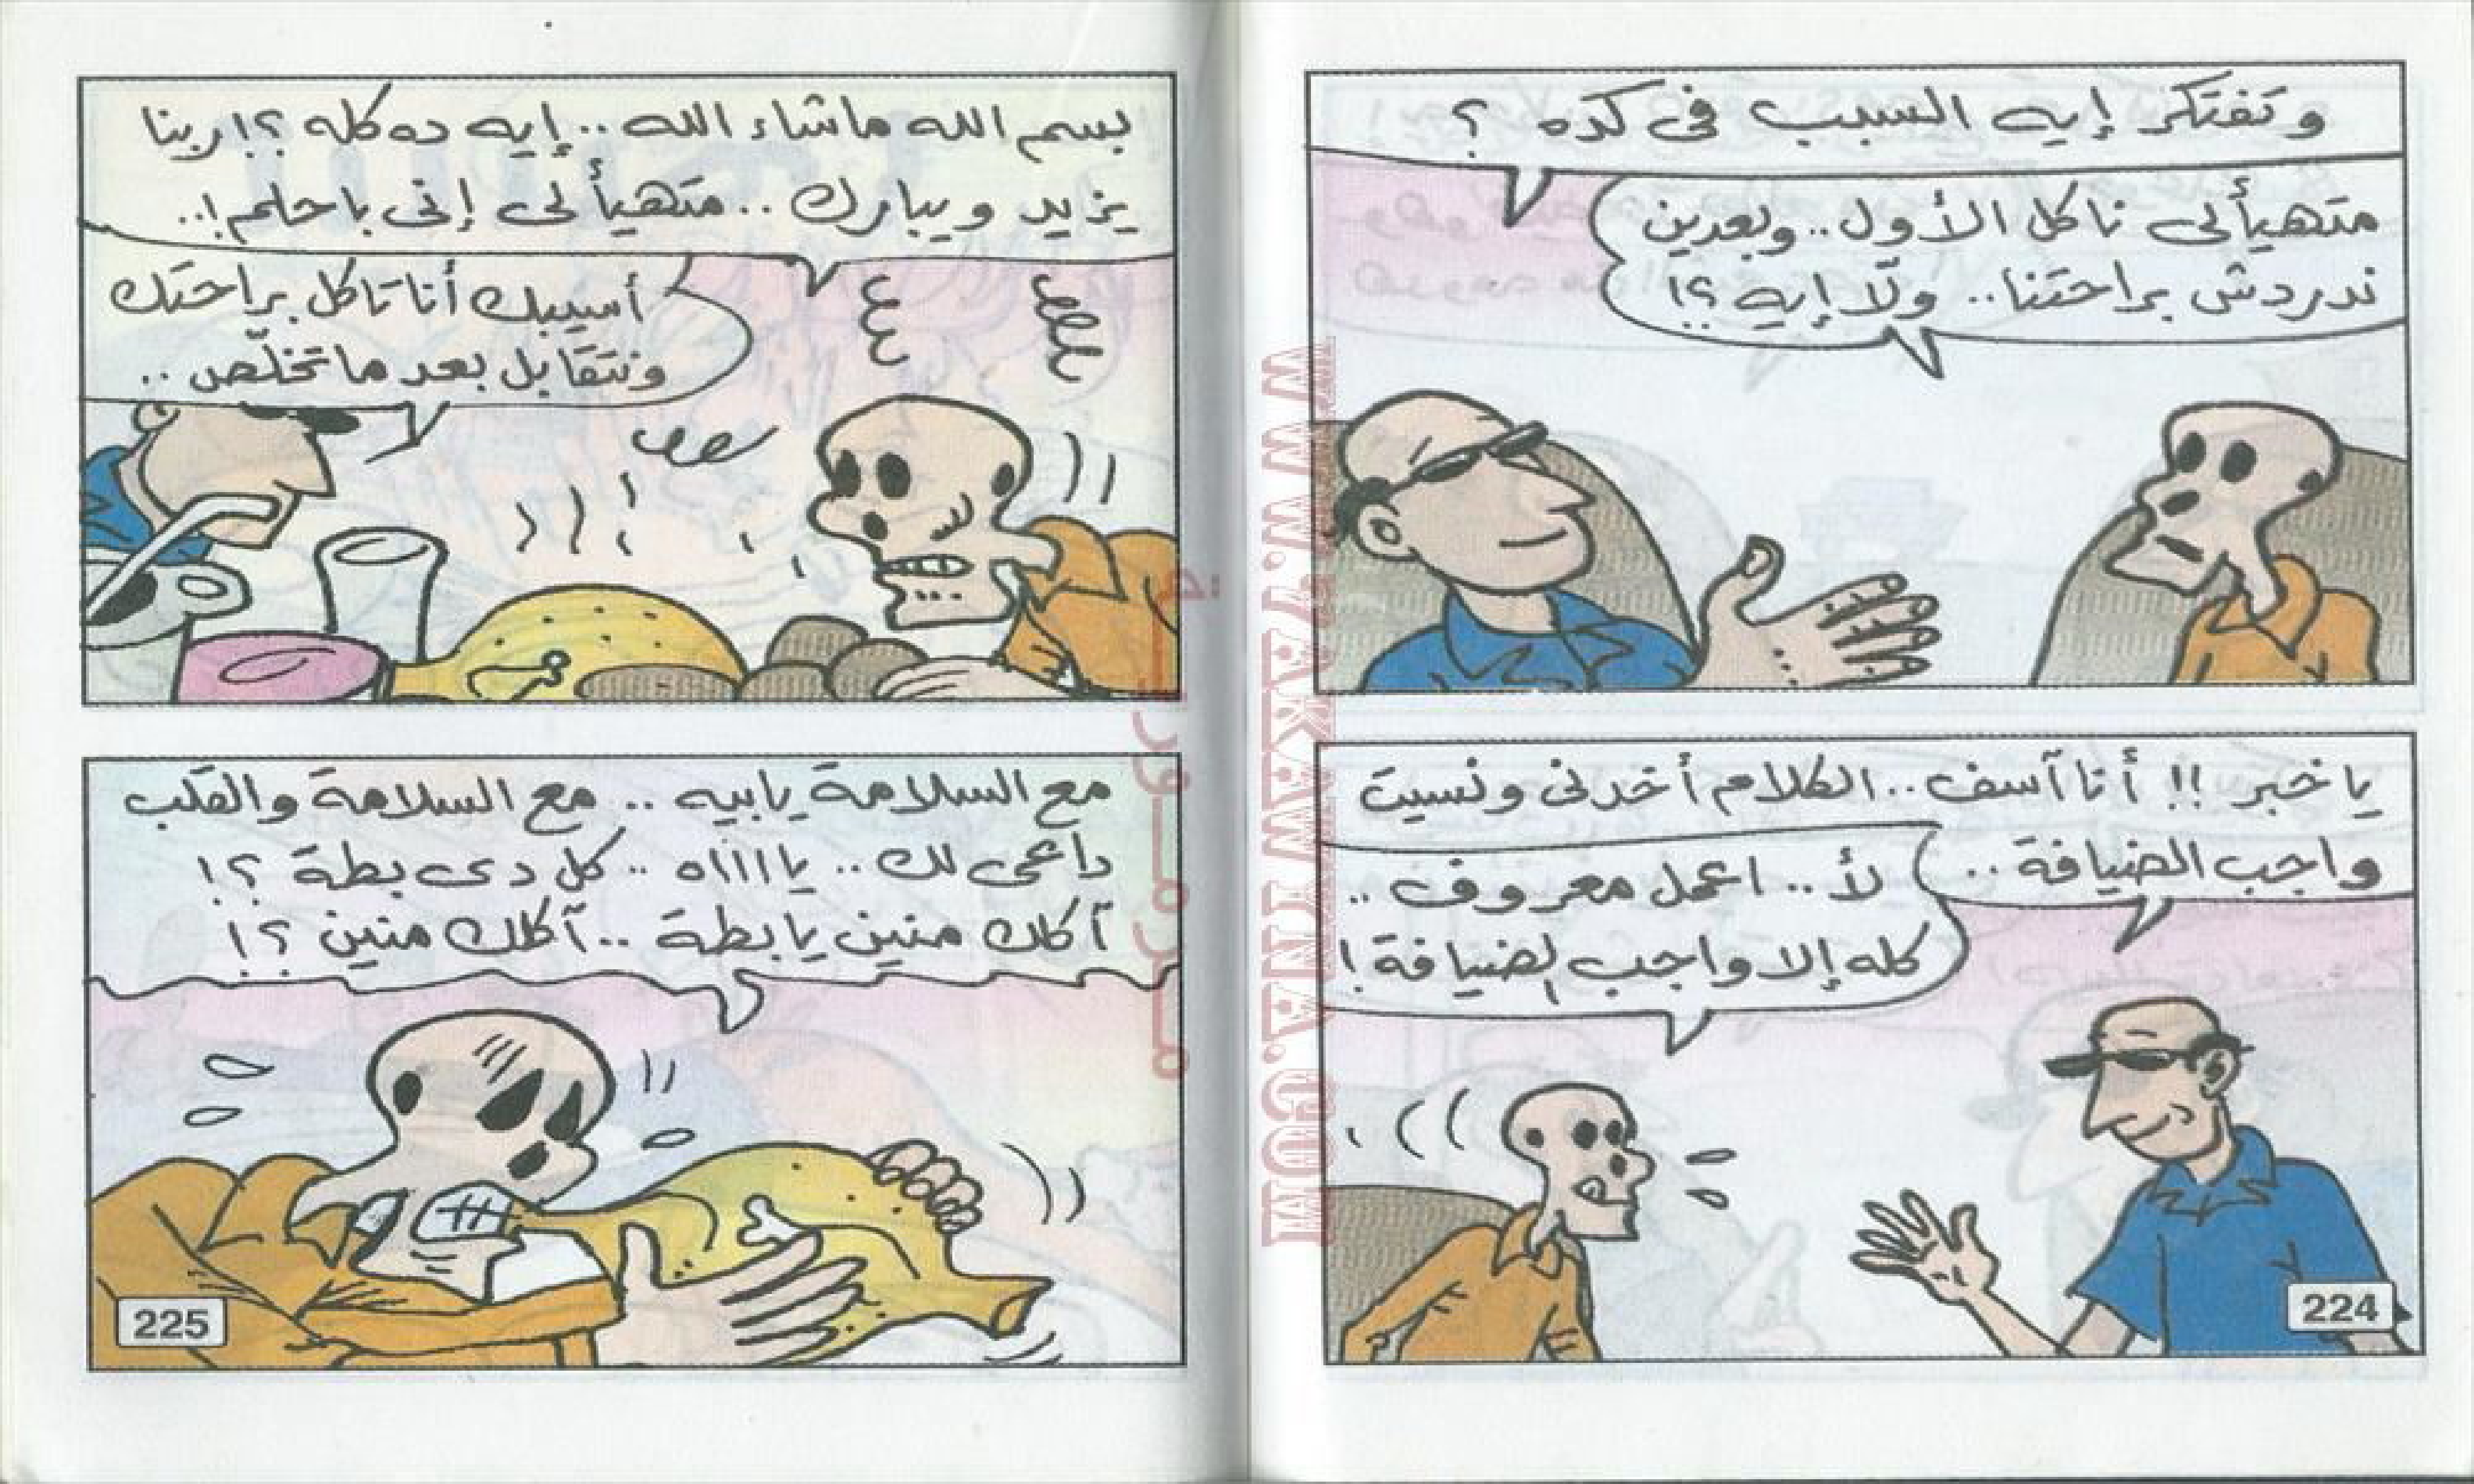 وتفتكر إيه السبب فى كده ؟
متهيألى ناكل الأول.. وبعدين
ندردش براحتنا.. ولّا إيه ؟!
يا خبر !! أنا آسف.. الكلام أخدنى ونسيت
واجب الضيافة..
لأ.. اعمل معروف..
كله إلا واجب الضيافة !
224
بسم الله ماشاء الله.. إيه ده كله ؟! ربنا
يزيد ويبارك.. متهيألى إنى باحلم !..
أسيبك أنا تاكل براحتك
ونتقابل بعد ما تخلّص..
مع السلامة يابيه.. مع السلامة والقلب
داعى لك.. يااااه.. كل دى بطة ؟!
آكلك منين يا بطة.. آكلك منين ؟!
225